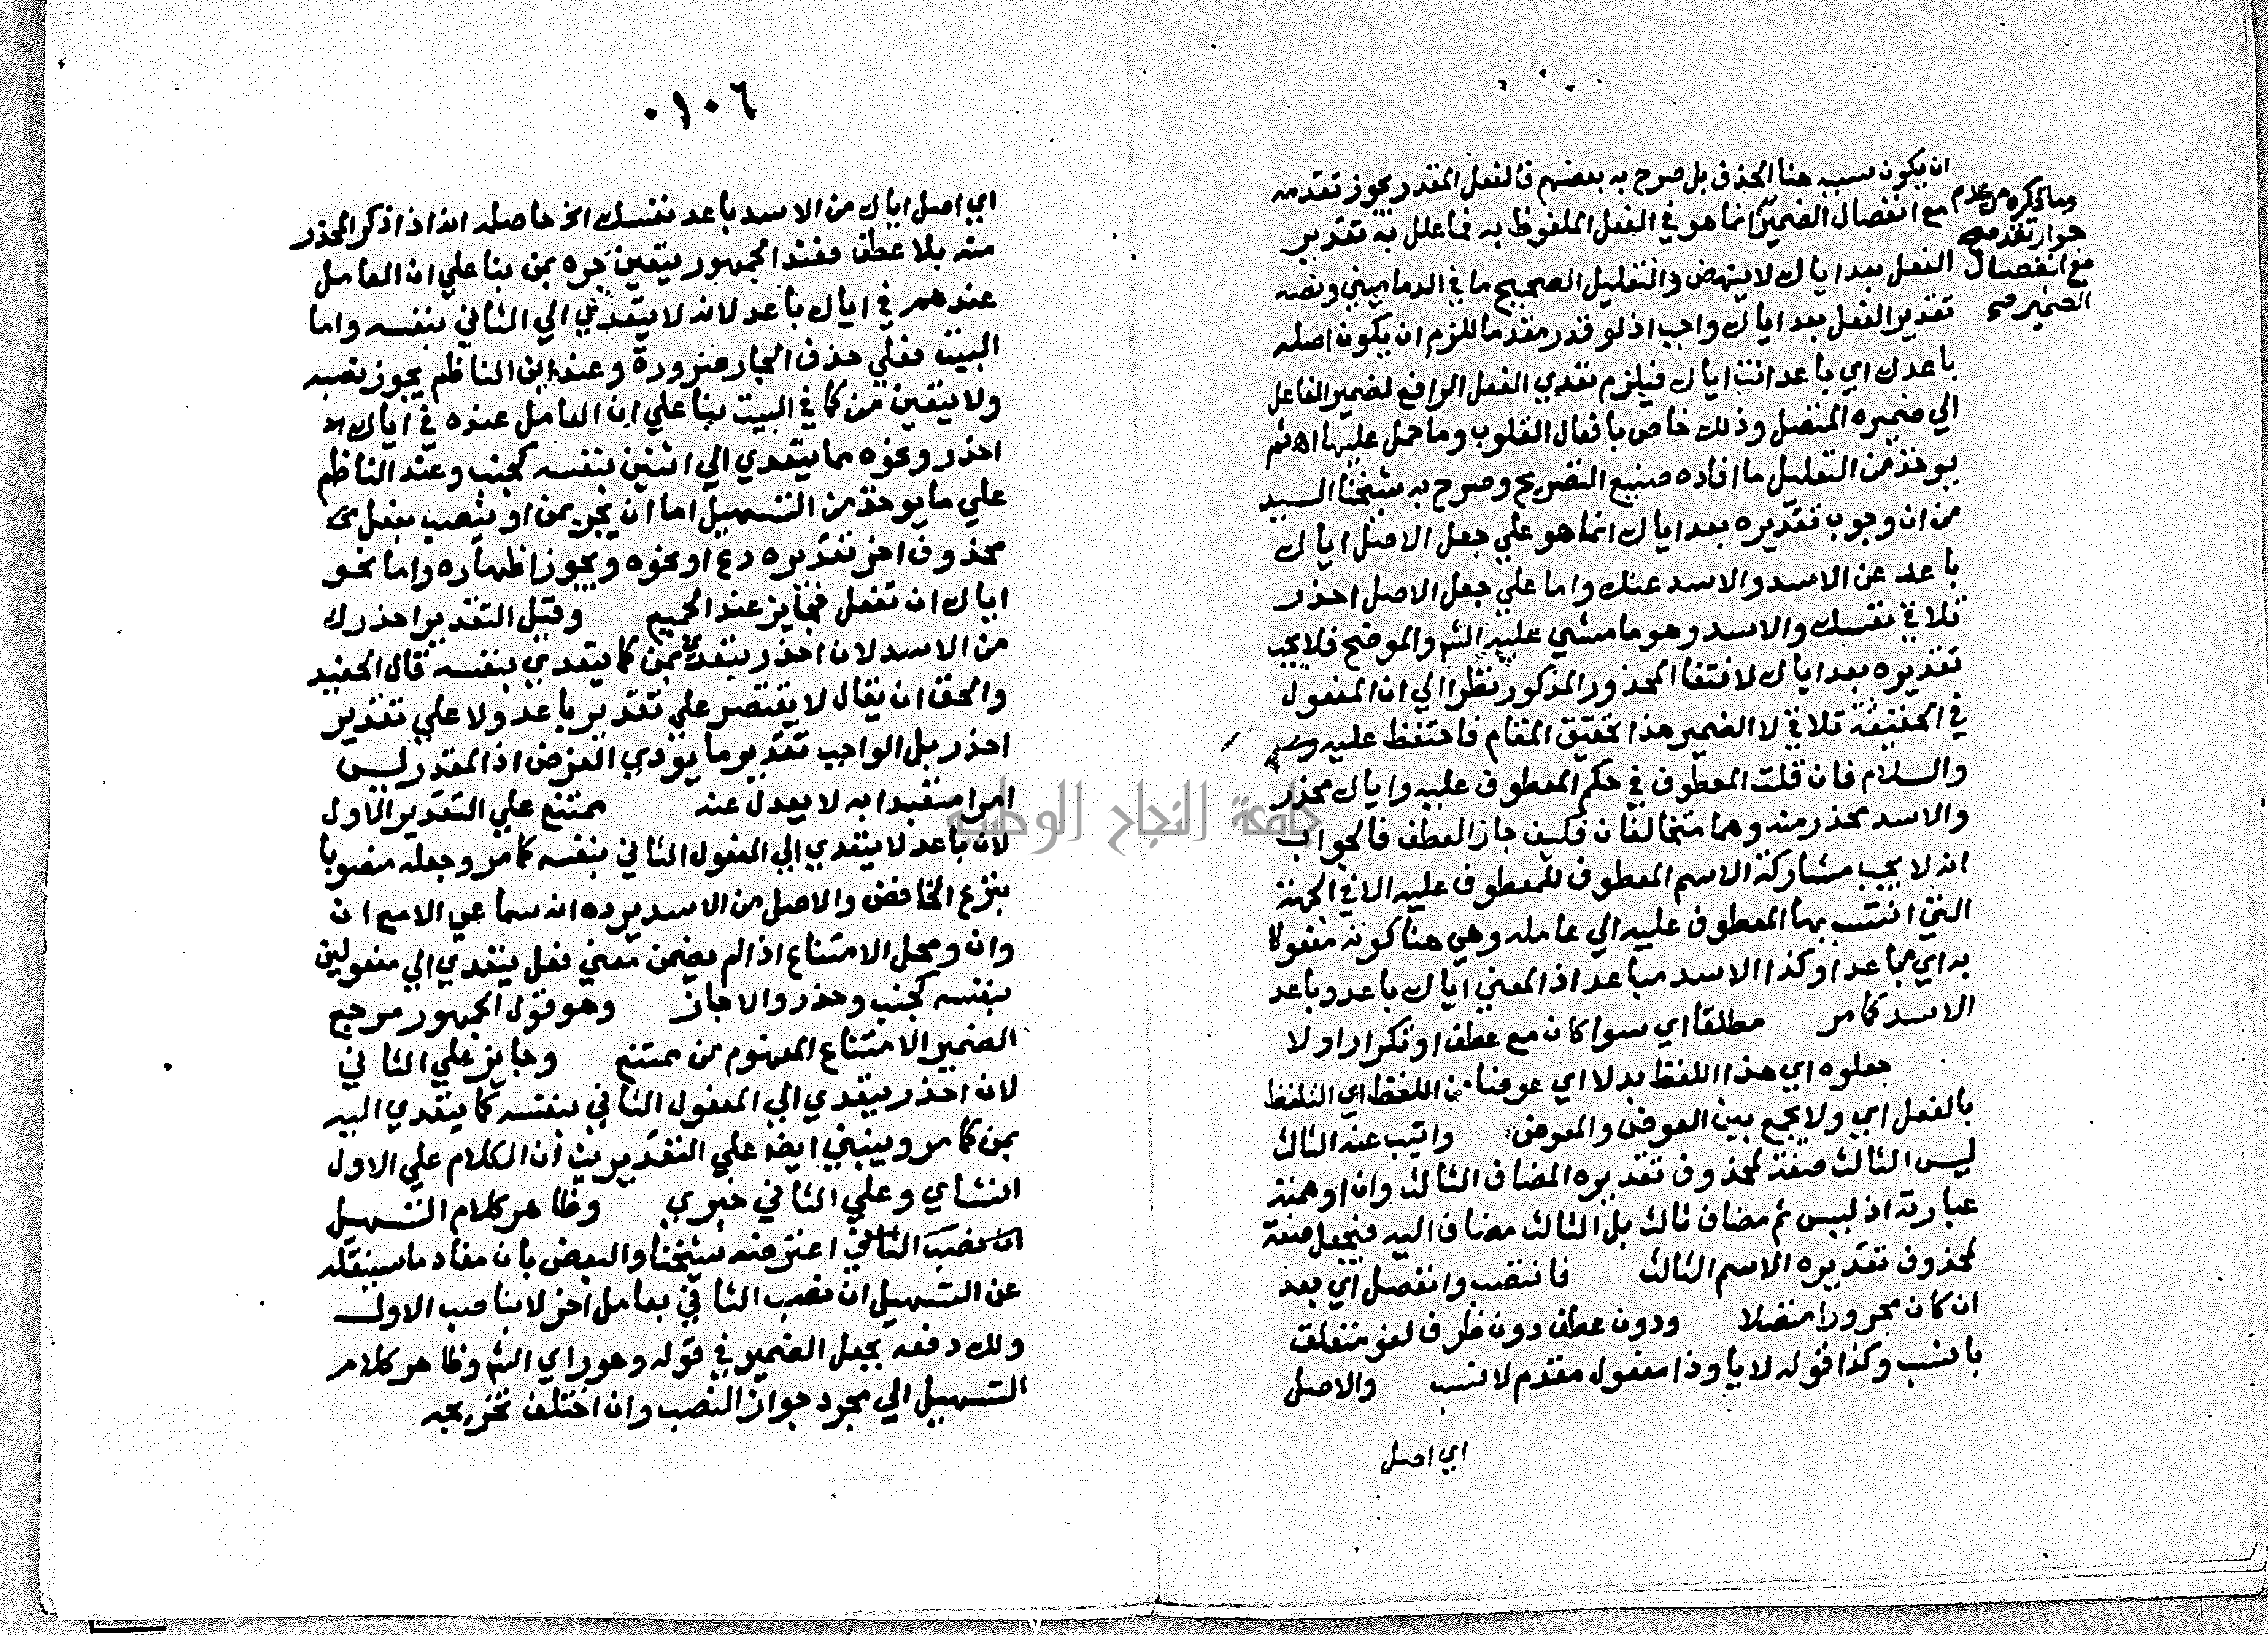 ان يكون سببه هنا الحذف بل صرح به بعضهم فالفعل المقدر يجوز تقدمه
مع انفصال الضمير انما هو في الفعل الملفوظ به فما علل به تقدير
وما ذكره من عدم
جواز تقدمه
مع انفصال
الضمير صح
الفعل بعد اياك لا ينهض والتعليل الصحيح ما في الدماميني ونصه
تقدير الفعل بعد اياك واجب اذ لو قدر مقدما للزم ان يكون اصله
باعدك اي باعد انت اياك فيلزم تعدي الفعل الرافع لضمير الفاعل
الي ضميره المتصل وذلك خاص بافعال القلوب وما حمل عليها اه ثم
يوخذ من التعليل ما افاده صنيع التصريح وصرح به شيخنا السيد
من ان وجوب تقديره بعد اياك انما هو علي جعل الاصل اياك
باعد عن الاسد والاسد عنك واما علي جعل الاصل احذر
تلاقي نفسك والاسد وهو ما مشي عليه الشم والموضح فلا يجب
تقديره بعد اياك لانتفا المحذور المذكور نظرا الي ان المفعول
في الحقيقة تلاقي لا الضمير هذا تحقيق المقام فاحتفظ عليه
والسلام فان قلت المعطوف في حكم المعطوف عليه واياك محذر
والاسد محذر منه وهما متخالفان فكيف جاز العطف فالجواب
انه لا يجب مشاركة الاسم المعطوف للمعطوف عليه الا في الجهة
التي انتسب بها المعطوف عليه الي عامله وهي هنا كونه مفعولا
به اي مباعدا وكذا الاسد مباعد اذ المعني اياك باعد وباعد
الاسد كما مر مطلقا اي سوا كان مع عطف او تكرار اولا
جعلوه اي هذا اللفظ بدلا اي عوضا من اللفظ اي التلفظ
بالفعل اي ولا يجمع بين العوض والمعوض وانيب عنه الثالث
ليس الثالث صفة لمحذوف تقديره المضاف الثالث وان اوهمته
عبارته اذ ليس ثم مضاف ثالث بل الثالث مضاف اليه فيجعل صفة
لمحذوف تقديره الاسم الثالث فانتصب وانفصل اي بعد
ان كان مجرورا متصلا ودون عطف دون ظرف لغو متعلق
بانسب وكذا قوله لايا وذا مفعول مقدم لانسب والاصل
اي اصل
٠١٠٦
اي اصل اياك من الاسد باعد نفسك الخ حاصله انه اذا ذكر المحذر
منه بلا عطف فعند الجمهور يتعين جره بمن بنا علي ان العامل
عندهم في اياك باعد لانه لا يتعدي الي الثاني بنفسه واما
البيت فعلي حذف الجار ضرورة وعند ابن الناظم يجوز نصبه
ولا يتعين من كما في البيت بنا علي ان العامل عنده في اياك
احذر ونحوه مما يتعدي الي اثنين بنفسه كجنب وعند الناظم
علي ما يوخذ من التسهيل اما ان يجر بمن او ينصب بفعل
محذوف اخر تقديره دع او نحوه ويجوز اظهاره واما نحو
اياك ان تفعل فجايز عند الجميع وقيل التقدير احذرك
من الاسد لان احذر يتعدي بمن كما يتعدي بنفسه قال الحفيد
والحق ان يقال لا يقتصر علي تقدير باعد ولا علي تقدير
احذر بل الواجب تقدير ما يودي الغرض اذ المقدر ليس
امرا متعبدا به لا يعدل عنه ممتنع علي التقدير الاول
لان باعد لا يتعدي الي المفعول الثاني بنفسه كما مر وجعله منصوبا
بنزع الخافض والاصل من الاسد يرده انه سماعي الا مع ان
وان ومحل الامتناع اذا لم يضمن معني فعل يتعدي الي مفعولين
بنفسه كجنب وحذر والا جاز وهو قول الجمهور مرجع
الضمير الامتناع المفهوم من ممتنع وجايز علي الثاني
لان احذر يتعدي الي المفعول الثاني بنفسه كما يتعدي اليه
بمن كما مر وينبني ايضا علي التقديرين ان الكلام علي الاول
انشاي وعلي الثاني خبري وظاهر كلام التسهيل
ان نصب الثاني اعترضه شيخنا والبعض بان مفاد ما سينقله
عن التسهيل ان نصب الثاني بعامل اخر لا بناصب الاول
ولك دفعه بجعل الضمير في قوله وهو راي الشم وظاهر كلام
التسهيل الي مجرد جواز النصب وان اختلف تخريجه
جامعة النجاح الوطنية